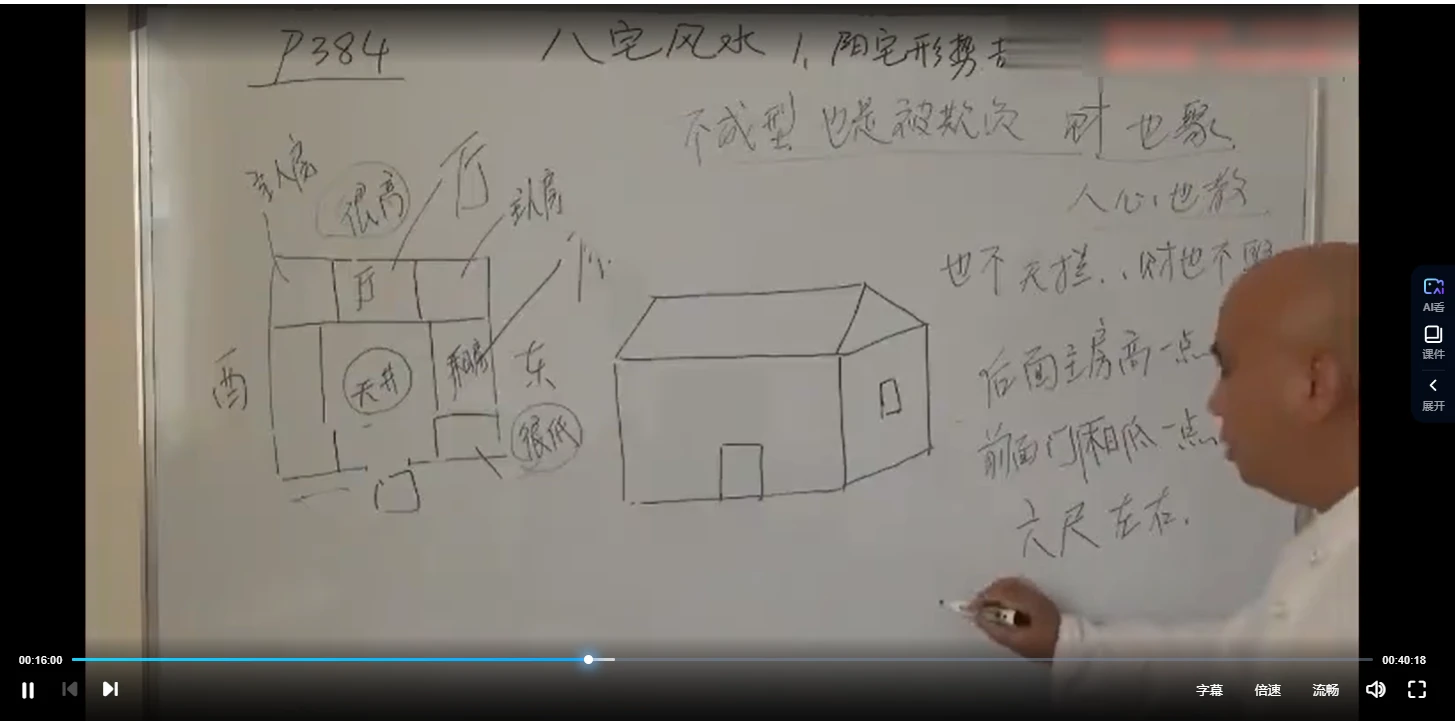 P384
八宅风水 1、阳宅形势吉
不成型 也是被欺负 财也聚
人心也散
也不天拦、财也不聚
后面主房高一点
前面门厢低一点
六尺左右.
主人房
很高
厅
主人房
厅
门
天井
厢房
西
东
很低
门
AI看
课件
展开
00:16:00
00:40:18
字幕
倍速
流畅